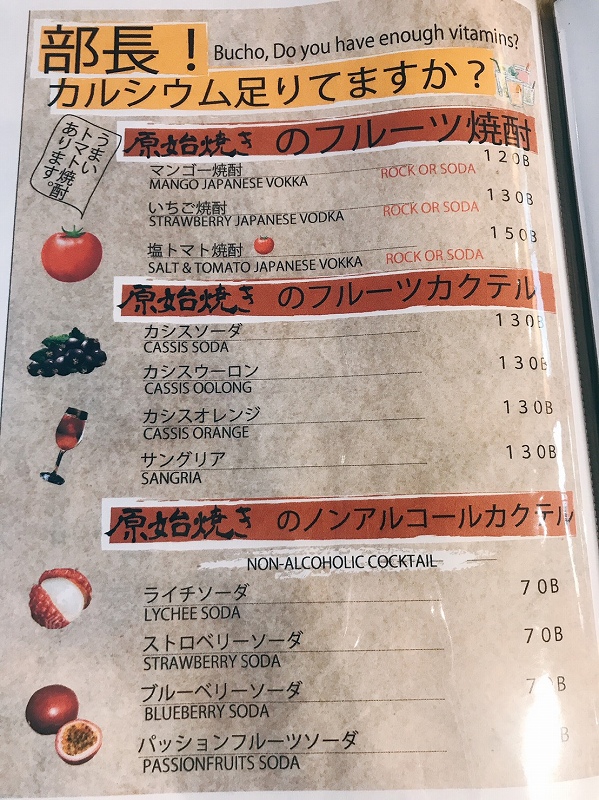 部長！
Bucho, Do you have enough vitamins?
カルシウム足りてますか？
うまい
トマト焼酎
あります。
原始焼き のフルーツ焼酎
マンゴー焼酎 120B
MANGO JAPANESE VOKKA ROCK OR SODA
いちご焼酎 130B
STRAWBERRY JAPANESE VODKA ROCK OR SODA
塩トマト焼酎 150B
SALT & TOMATO JAPANESE VOKKA ROCK OR SODA
原始焼き のフルーツカクテル
カシスソーダ 130B
CASSIS SODA
カシスウーロン 130B
CASSIS OOLONG
カシスオレンジ 130B
CASSIS ORANGE
サングリア 130B
SANGRIA
原始焼き のノンアルコールカクテル
NON-ALCOHOLIC COCKTAIL
ライチソーダ 70B
LYCHEE SODA
ストロベリーソーダ 70B
STRAWBERRY SODA
ブルーベリーソーダ 70B
BLUEBERRY SODA
パッションフルーツソーダ B
PASSIONFRUITS SODA